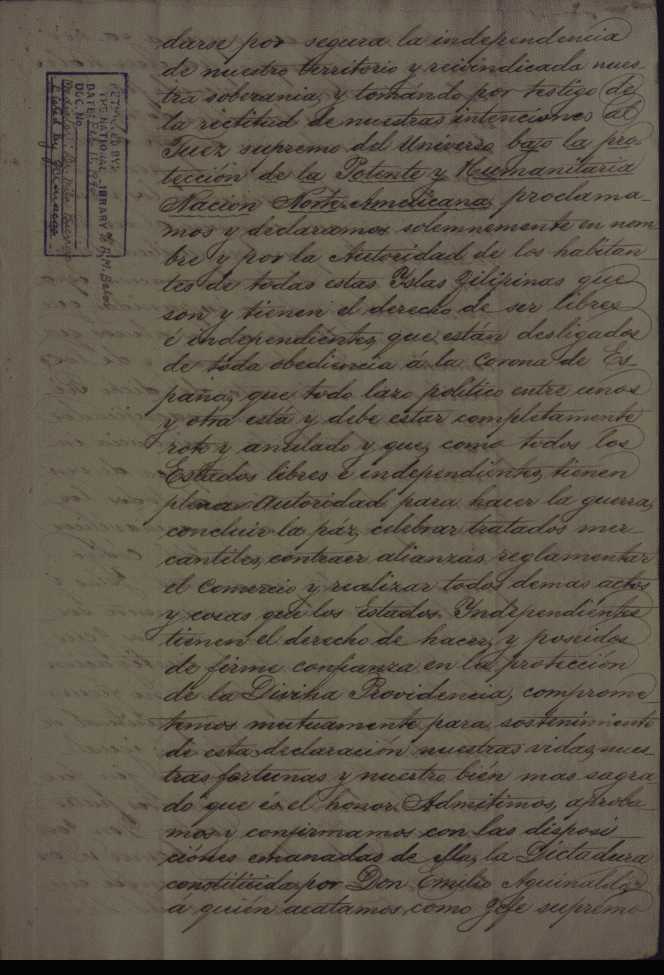 darse por segura la independencia
de nuestro territorio y reivindicada nues-
tra soberania, y tomando por testigo de
la rectitud de nuestras intenciones al
Juez supremo del Universo bajo la pro-
tección de la Potente y Humanitaria
Nacion Norte-Americana, proclama-
mos y declaramos solemnemente en nom
bre y por la Autoridad de los habitan
tes de todas estas Yslas Filipinas que
son y tienen el derecho de ser libres
é independientes, que están desligados
de toda obediencia á la Corona de Es-
paña, que todo lazo politico entre unos
y otra está y debe estar completamente
roto y anulado y que, como todos los
Estados libres e independientes, tienen
plena Autoridad para hacer la guerra,
concluir la páz, celebrar tratados mer-
cantiles, contraer alianzas, reglamentar
el comercio y realizar todos demas actos
y cosas que los Estados Independientes
tienen el derecho de hacer, y poseidos
de firme confianza en la protección
de la Divina Providencia, comprome
temos mutuamente para sostenimiento
de esta declaración nuestras vidas, nues-
tras fortunas y nuestro bién mas sagra
do que és el honor. Admitimos, aproba-
mos y confirmamos con las disposi
ciónes emanadas de ella, la Dictadura
constituida por Don Emilio Aguinaldo,
á quién acatamos como Gefe supremo
BY:
THE NATIONAL LIBRARY
DATE:
DOC. No.